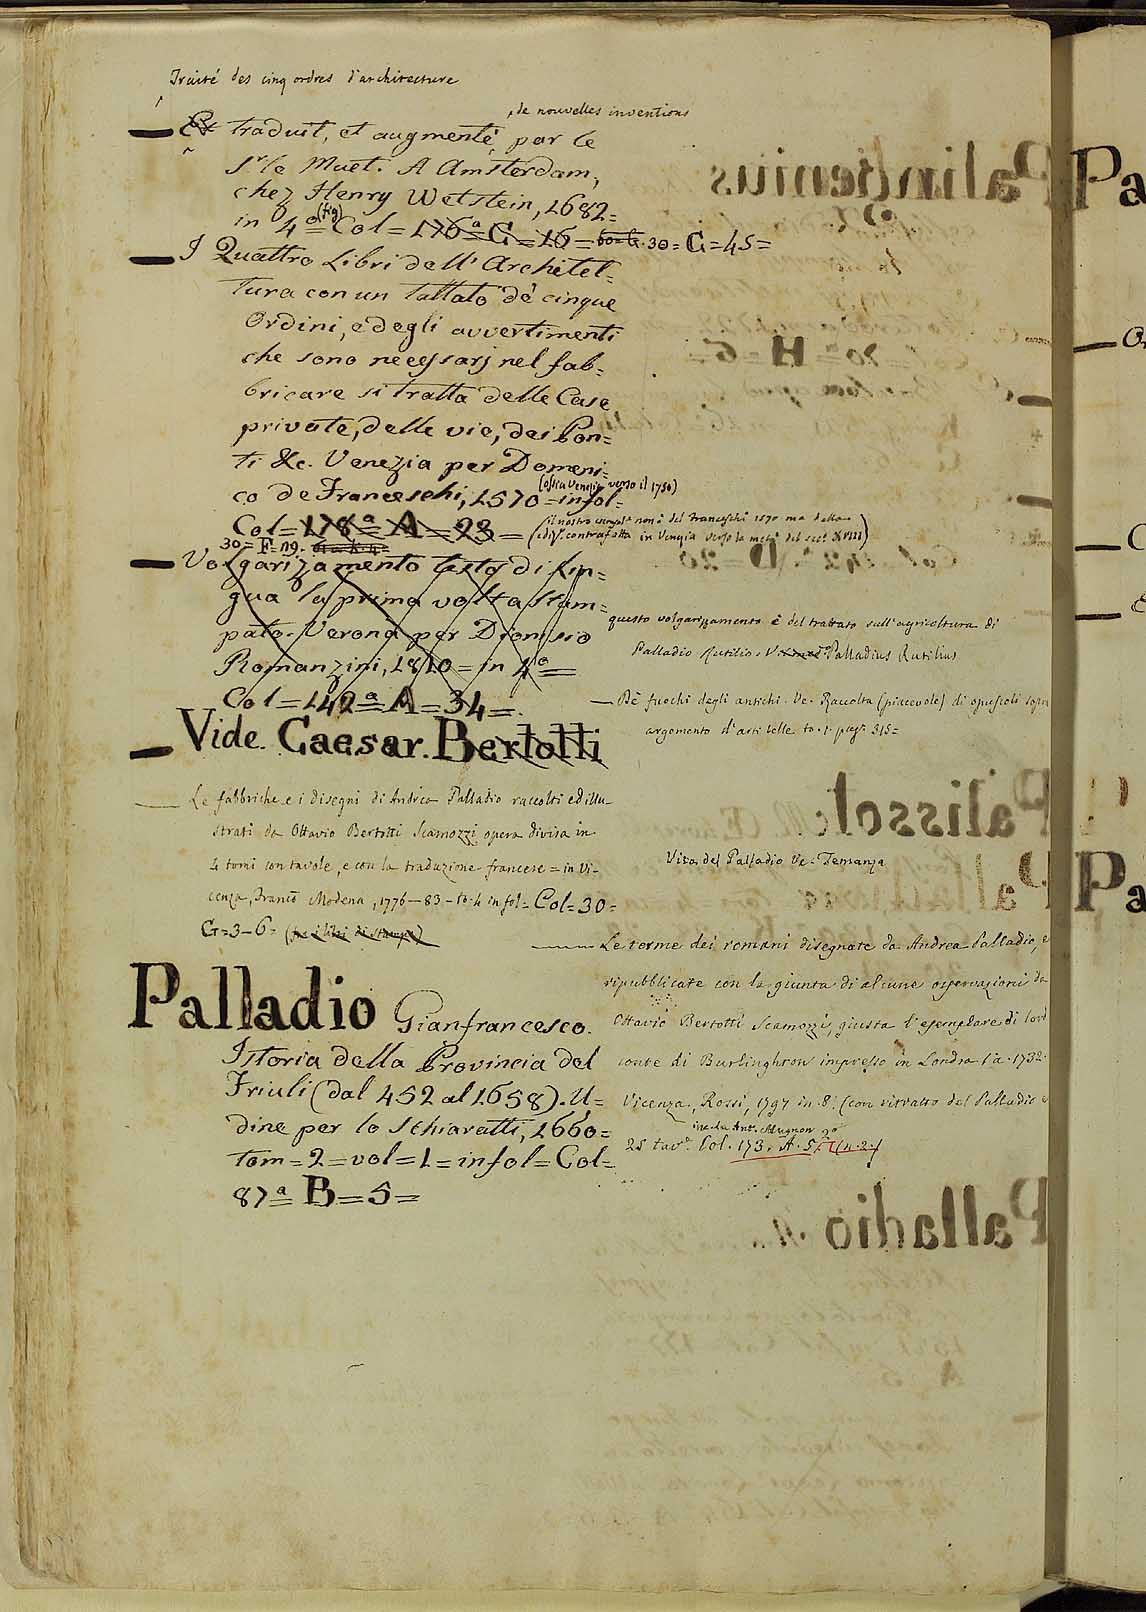 Traité des cinq ordres d'architecture
, de nouvelles inventions
— Et traduit, et augmenté, par le
Sr. le Muet. A Amsterdam,
chez Henry Wetstein, 1682=
in 4o= (fig) Col = 176a= G = 16 = 30= G=45=
— I Quattro Libri dell' Architet=
tura con un tattato dè cinque
Ordini, e degli avvertimenti
che sono necessarj nel fab=
bricare si tratta delle Case
private, delle vie, dei Pon=
ti &c. Venezia per Domeni=
co de Franceschi, 1570=infol=
(ossia Venezia verso il 1750)
Col=178a= A=23=
(il nostro esempl.e non è del Franceschi 1570 ma della
ediz. contrafatta in Venezia verso la metà del secol XVIII)
30= F=19.
— Volgarizzamento testo di Lin=
gua la prima volta stam=
pato. Verona per Dionisio
Romanzini, 1810=in 4o=
Col=142a= A=34=
questo volgarizzamento è del trattato sull'agricoltura di
Palladio Rutilio. V. Palladius Rutilius
— Dè fuochi degli antichi. Ve. Raccolta (piacevole) di opuscoli sopra
argomento d'arti belle to. 1. pag. 315=
— Vide. Caesar. Bertotti
— Le fabbriche e i disegni di Andrea Palladio raccolti ed illu-
strati da Ottavio Bertotti Scamozzi opera divisa in
4 tomi con tavole, e con la traduzione francese = in Vi-
cenza, Franco Modena, 1776-83- to. 4 in fol= Col=30=
G=3-6= (fra i libri di stampe)
Vita del Palladio Ve= Temanza
— Le terme dei romani disegnate da Andrea Palladio, e
ripubblicate con la giunta di alcune osservazioni da
Ottavio Bertotti Scamozzi, giusta l'esemplare di lord
conte di Burlinghron impresso in Londra l'a. 1732.
Vicenza, Rossi, 1797 in 8. (con ritratto del Palladio
inc. da Ant. Mugnon
25 tav.e Col. 173. A. 5.
Palladio Gianfrancesco.
Istoria della Provincia del
Friuli (dal 452 al 1658). U=
dine per lo Schiratti, 1660=
tom=2=vol=1=infol=Col=
87a= B=5=
Pa
— Or
— C
Pa